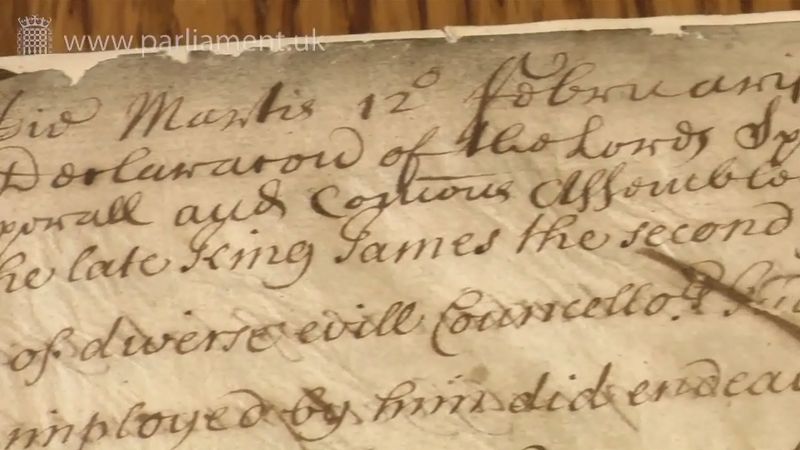 www.parliament.uk
Die Martis 12° February
Declaracon of the Lords Sp
porall and Com̄ons Assemble
he late King James the second
of diverse evill Councello.rs
imployed by him did endeav